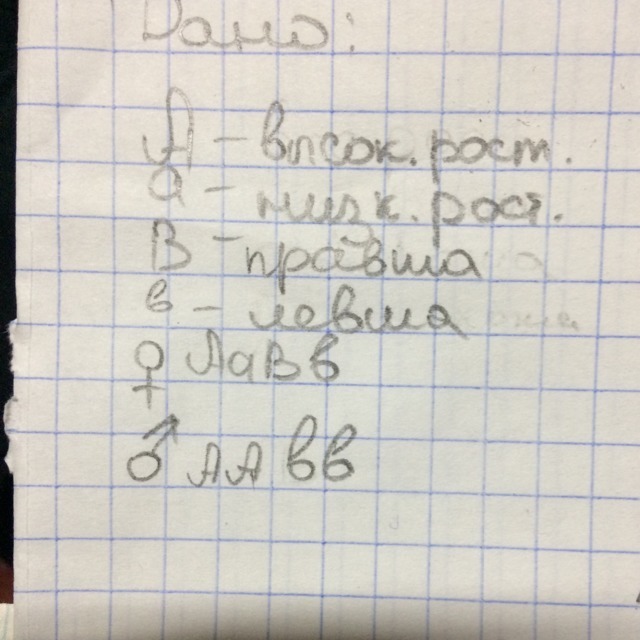 Дано:
A – высок. рост.
a – низк. рост.
B – правша
в – левша
♀ AaBв
♂ AA вв